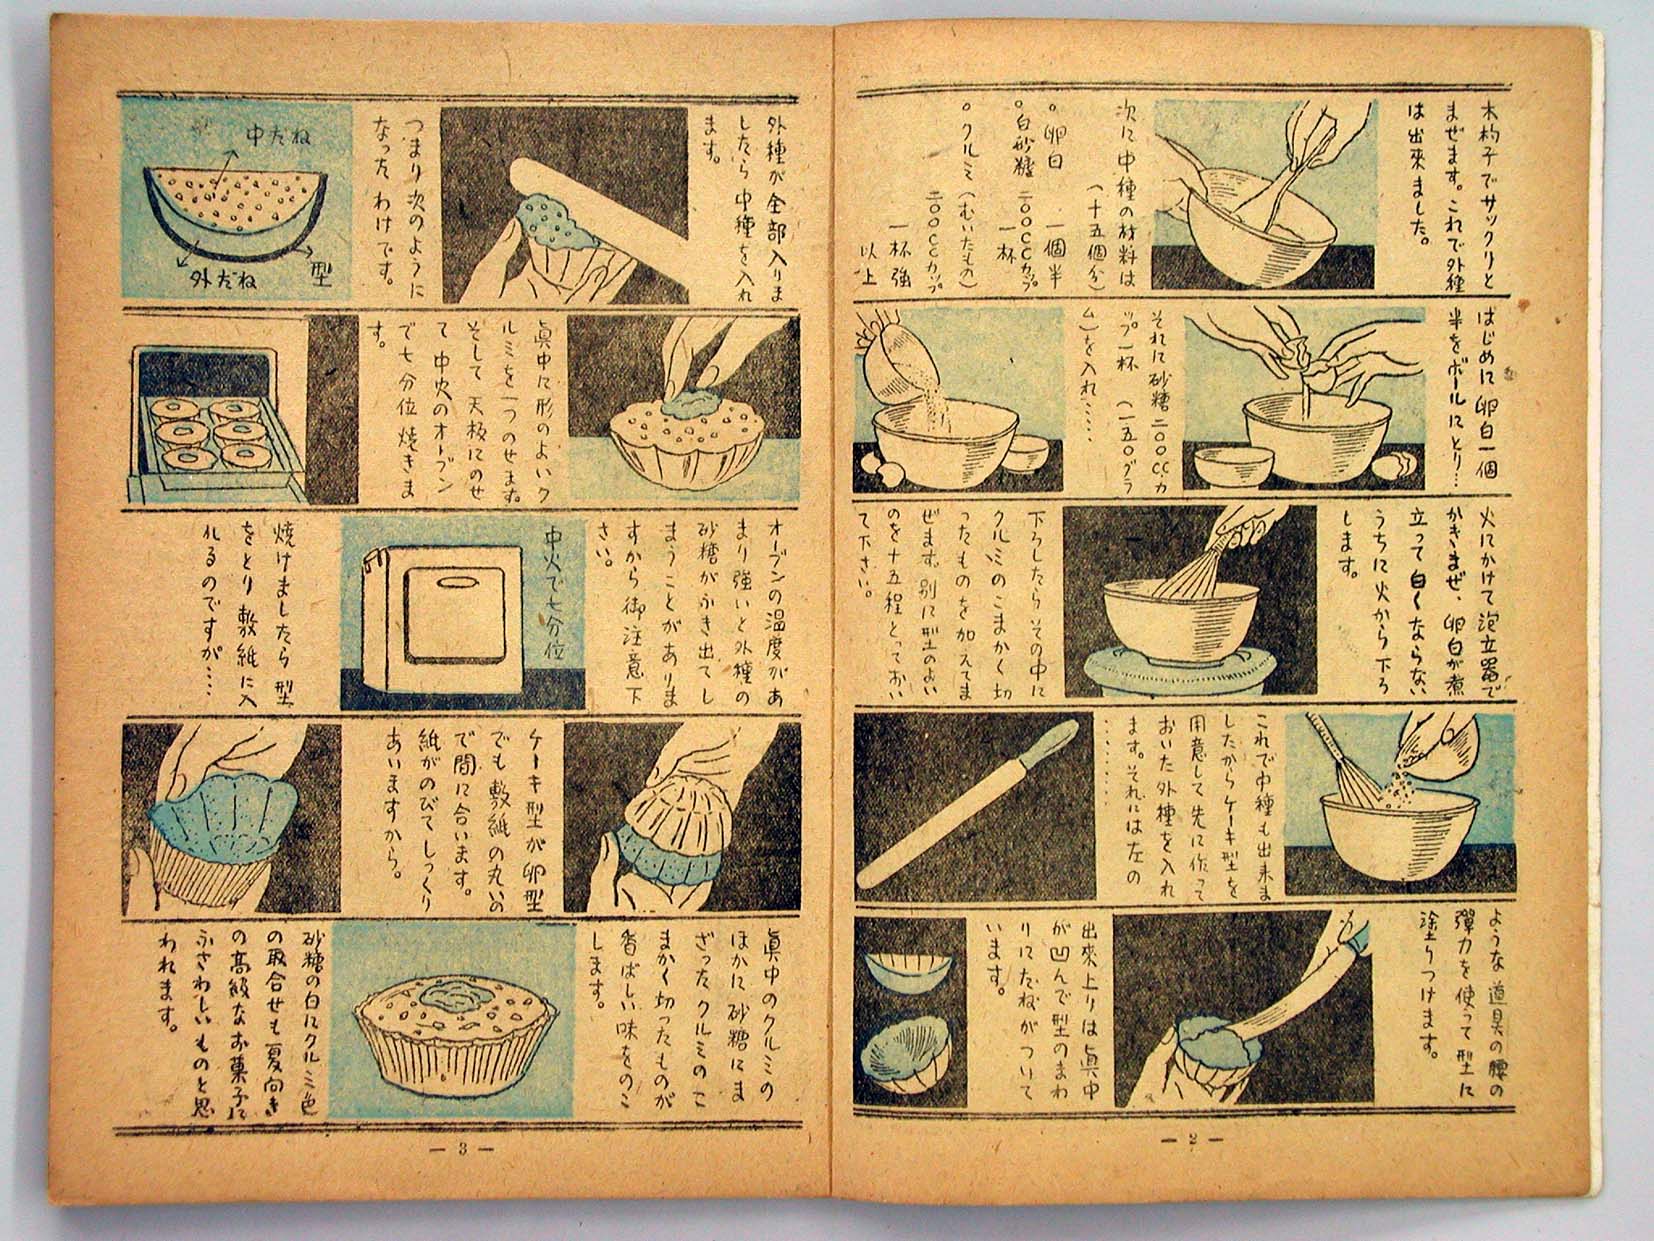 木杓子でサックリと
まぜます。これで外種
は出來ました。
次に中種の材料は
(十五個分)
○卵白　一個半
○白砂糖　二〇〇CCカップ
一杯
○クルミ(むいたもの)
二〇〇CCカップ
一杯強
以上
はじめに卵白一個
半をボールにとり…
それに砂糖二〇〇CCカ
ップ一杯　(一五〇グラ
ム)を入れ……
火にかけて泡立器で
かきまぜ、卵白が煮
立って白くならない
うちに火から下ろ
します。
下ろしたらその中に
クルミのこまかく切
ったものを加えてま
ぜます。別に型のよい
のを十五程とっておい
て下さい。
これで中種も出來ま
したからケーキ型を
用意して先に作って
おいた外種を入れ
ます。それには左の
……
ような道具の腰の
彈力を使って型に
塗りつけます。
出來上りは眞中
が凹んで型のまわ
りにたねがついて
います。
— 2 —
外種が全部入りま
したら中種を入れ
ます。
つまり次のように
なったわけです。
中だね
外だね
型
眞中に形のよいク
ルミを一つのせます。
そして天板にのせ
て中火のオーブン
で七分位焼きま
す。
オーブンの温度があ
まり強いと外種の
砂糖がふき出てし
まうことがありま
すから御注意下
さい。
中火で七分位
焼けましたら型
をとり敷紙に入
れるのですが……
ケーキ型が卵型
でも敷紙の丸いの
で間に合います。
紙がのびてしっくり
あいますから。
眞中のクルミの
ほかに砂糖にま
ざったクルミのこ
まかく切ったものが
香ばしい味をのこ
します。
砂糖の白にクルミ色
の取合せも夏向き
の高級なお菓子に
ふさわしいものと思
われます。
— 3 —